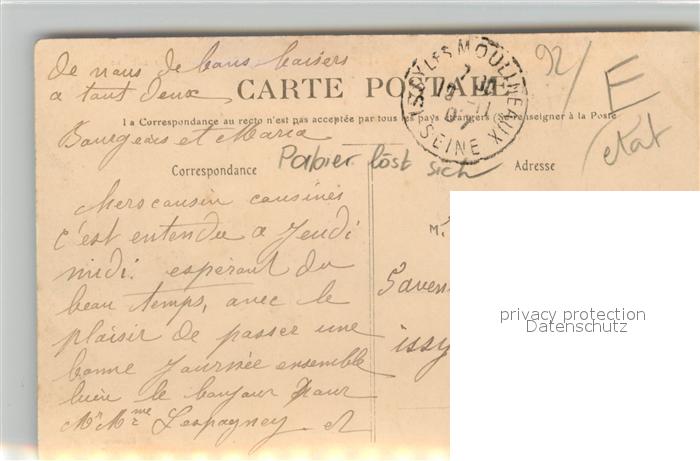 de nous de bons baisers
a tout deux
CARTE POSTALE
La Correspondance au recto n'est pas acceptée par tous les pays étrangers (Se renseigner à la Poste
Bourgeois et Maria
ISSY LES MOULINEAUX
SEINE
92/
E
etat
Papier löst sich
Correspondance
Adresse
cousin cousines
c'est entendu a Jeudi
midi. espérant du
beau temps, avec le
plaisir de passer une
bonne Journée ensemble
bien le bonjour pour
Mr Mme Lespagney. et
M.
issy
privacy protection
Datenschutz